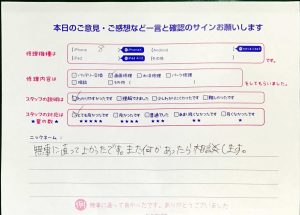 本日のご意見・ご感想など一言と確認のサインお願いします
修理機種は
iPhone 8
iPad
です。
修理内容は
バッテリー交換 画面修理 水没修理 パーツ修理
をしてもらいました。
スタッフの説明は
わかりやすかったです 理解できました 少しわかりにくかったです 難しかったです
スタッフの対応は
★星の数★
とても良かったです 良かったです 普通でした
★★★★★ ★★★★ ★★★ ★★ ★
ニックネーム：
無事に直ってよかったです。また何かあったら相談します。
無事に直って良かったです。ありがとうございました